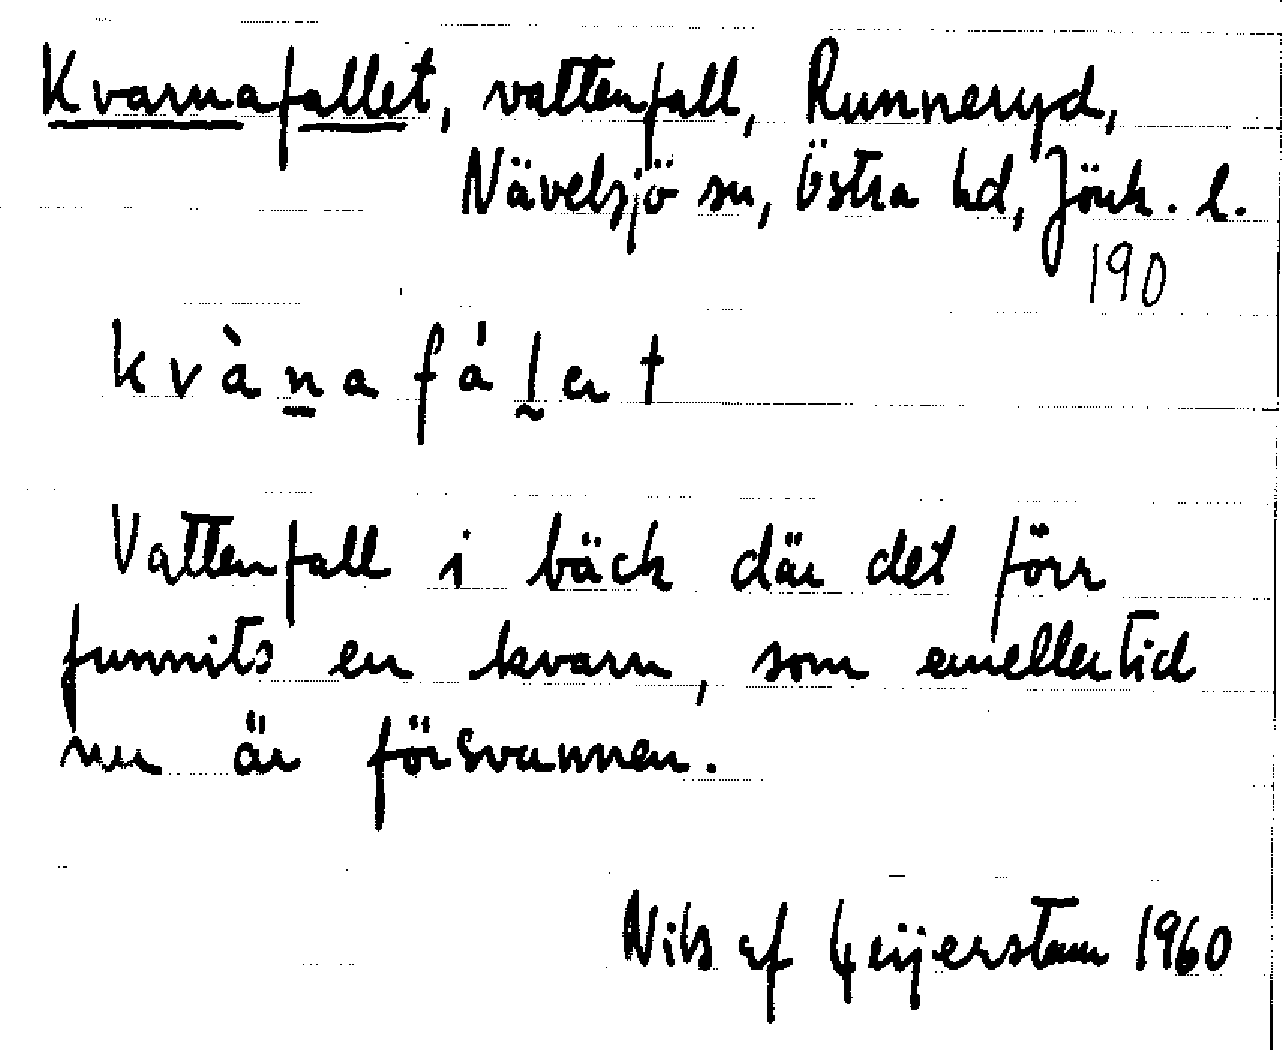 Kvarnafallet, vattenfall, Runneryd,
Nävelsjö sn, Östra hd, Jönk. l.
190
kvàn̲afál̰et
Vattenfall i bäck där det förr
funnits en kvarn, som emellertid
nu är försvunnen.
Nils af Geijerstam 1960